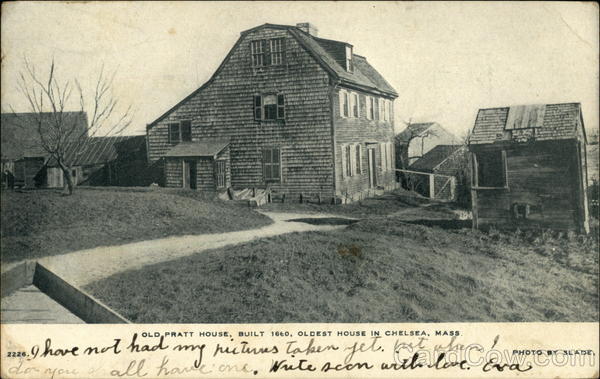 OLD PRATT HOUSE, BUILT 1660, OLDEST HOUSE IN CHELSEA, MASS.
2226. PHOTO BY SLADE.
I have not had my picturs taken yet. but when I
do you shall have one. Write soon with love. Eva
CardCow.com